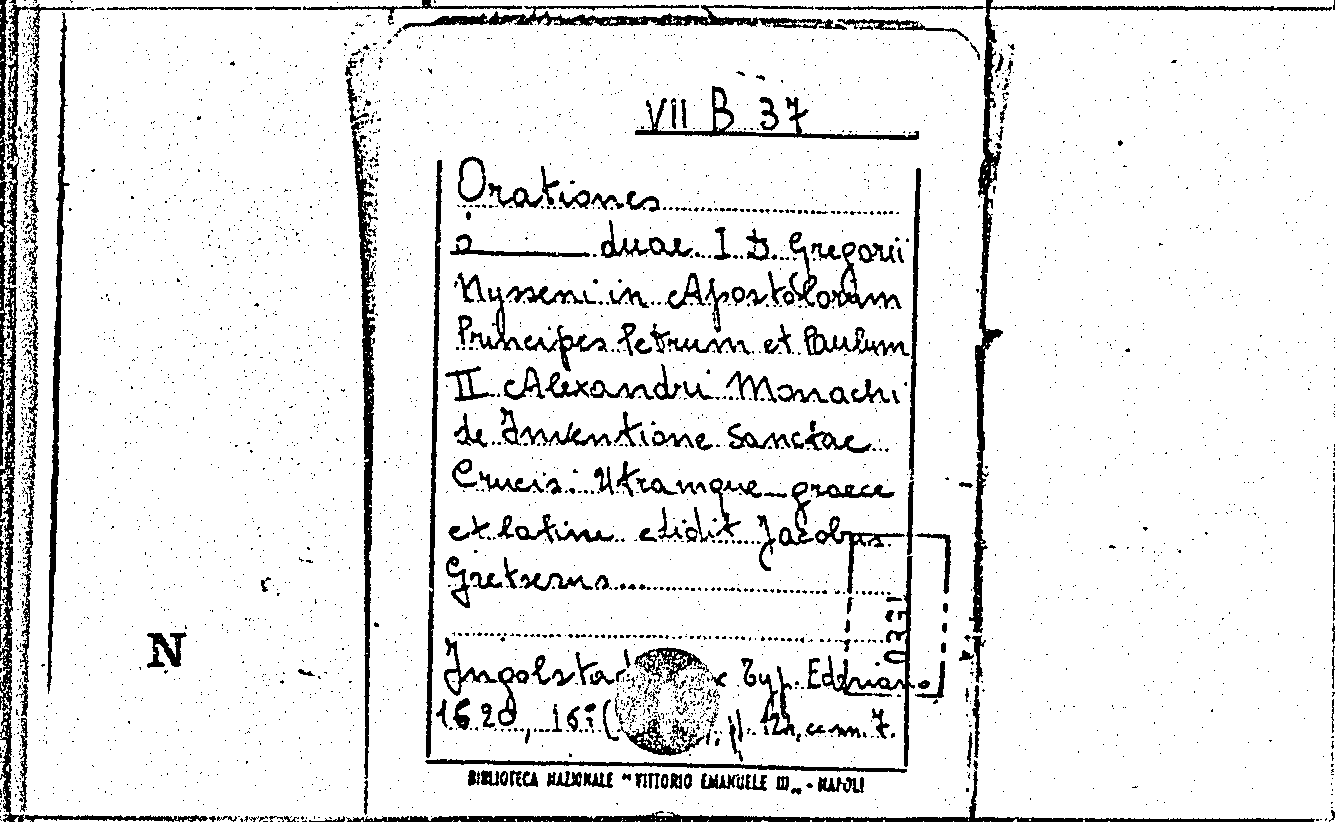 VII B 37
Orationes
duae I D. Gregorii
Nysseni in Apostolorum
Principes Petrum et Paulum
II Alexandri Monachi
de Inventione Sanctae
Crucis. Utramque graece
et latine edidit Jacobus
Gretserus...
Typ. Edériano
1620, 12n, cc nn. 7.
N
BIBLIOTECA NAZIONALE "VITTORIO EMANUELE III„ - NAPOLI